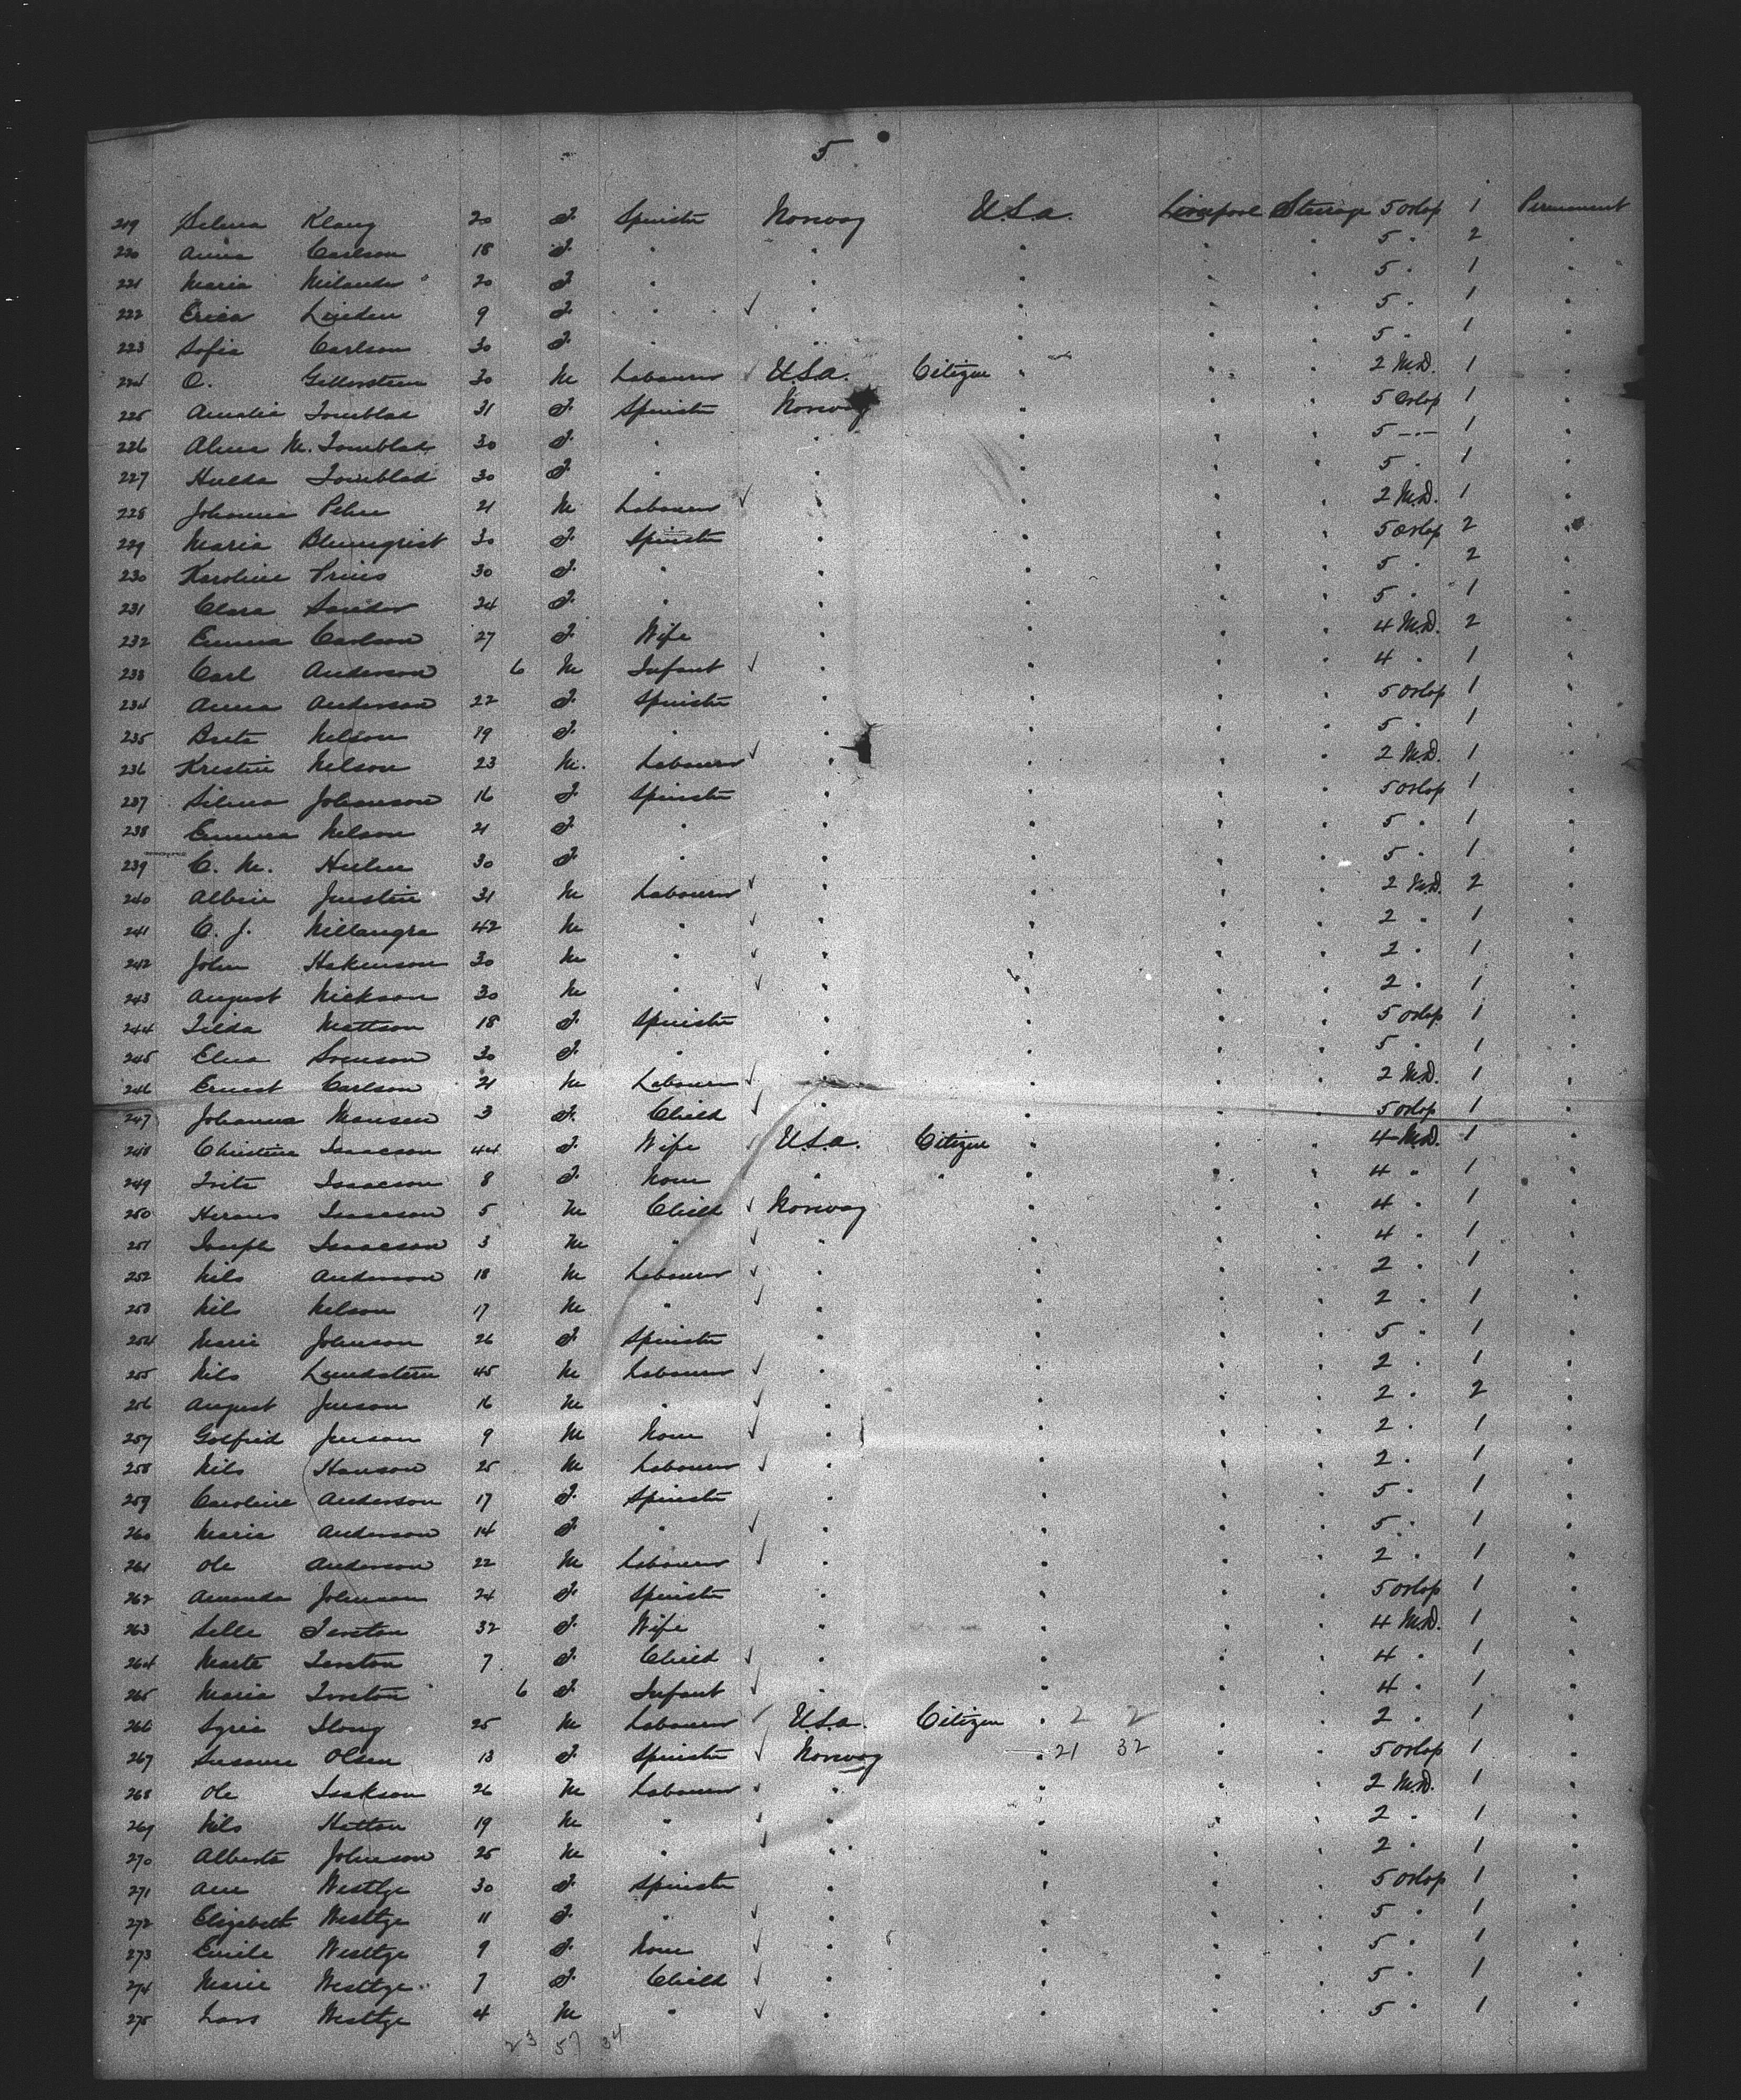 5
219 Selma Klang 20 F. Spinster Norway U.S.a. Liverpool Steerage 5 Orlop 1 Permanent
220 Anna Carlson 18 F. " " " " " 5 " 2 "
221 Maria Milander 20 F. " " " " " 5 " 1 "
222 Erica Linden 9 F. " ✓ " " " " 5 " 1 "
223 Sofia Carlson 30 F. " " " " " 5 " 1 "
224 O. 30 M Labourer ✓ U.S.a. Citizen " " " 2 M.D. 1 "
225 Amalia 31 F. Spinster Norway " " " 5 Orlop 1 "
226 Alma M. 30 F. " " " " " 5 -"- 1 "
227 Hulda 30 F. " " " " " 5 " 1 "
228 Johannes Pehr 21 M Labourer ✓ " " " " 2 M.D. 1 "
229 Maria Blumqvist 30 F. Spinster " " " " 5 Orlop 2 "
230 Karoline Prins 30 F. " " " " " 5 " 2 "
231 Clara Sander 24 F. " " " " " 5 " 1 "
232 Emma Carlson 27 F. Wife " " " " 4 M.D. 2 "
233 Carl Anderson 6 M Infant ✓ " " " " 4 " 1 "
234 Anna Anderson 22 F. Spinster " " " " 5 Orlop 1 "
235 Nelson 19 F. " " " " " 5 " 1 "
236 Kristin Nelson 23 M. Labourer ✓ " " " " 2 M.D. 1 "
237 Silma Johanson 16 F. Spinster " " " " 5 Orlop 1 "
238 Emma Nelson 21 F. " " " " " 5 " 1 "
239 C. M. Hulin 30 F. " " " " " 5 " 1 "
240 Albin Justin 31 M Labourer ✓ " " " " 2 M.D. 2 "
241 C. J. Millangra 42 M " ✓ " " " " 2 " 1 "
242 John Hakenson 30 M " ✓ " " " " 2 " 1 "
243 August Nickson 30 M " ✓ " " " " 2 " 1 "
244 Tilda Mattson 18 F. Spinster " " " " 5 Orlop 1 "
245 Elna Svenson 30 F. " " " " " 5 " 1 "
246 Ernest Carlson 21 M Labourer ✓ " " " " 2 M.D. 1 "
247 Johanna Monsen 3 F. Child ✓ " " " " 5 Orlop 1 "
248 Christina Isaacson 44 F. Wife ✓ U.S.a. Citizen " " " 4 M.D. 1 "
249 Isaacson 8 F. None " " " " " 4 " 1 "
250 Isaacson 5 M Child ✓ Norway " " " 4 " 1 "
251 Joseph Isaacson 3 M " ✓ " " " " 4 " 1 "
252 Nils Anderson 18 M Labourer ✓ " " " " 2 " 1 "
253 Nils Nelson 17 M " ✓ " " " " 2 " 1 "
254 Marie Johnson 26 F. Spinster " " " " 5 " 1 "
255 Nils Lundstern 45 M Labourer ✓ " " " " 2 " 1 "
256 August Jenson 16 M " ✓ " " " " 2 " 2 "
257 Golfried Jenson 9 M None ✓ " " " " 2 " 1 "
258 Nils Hanson 25 M Labourer ✓ " " " " 2 " 1 "
259 Caroline Anderson 17 F. Spinster " " " " 5 " 1 "
260 Maria Anderson 14 F. " ✓ " " " " 5 " 1 "
261 Ole Anderson 22 M Labourer ✓ " " " " 2 " 1 "
262 Amanda Johnson 24 F. Spinster " " " " 5 Orlop 1 "
263 Sille Terston 32 F. Wife " " " " 4 M.D. 1 "
264 Marte Terston 7 F. Child ✓ " " " " 4 " 1 "
265 Maria Terston 6 F. Infant ✓ " " " " 4 " 1 "
266 25 M Labourer ✓ U.S.a. Citizen " 2 2 " " 2 " 1 "
267 Susanne Olsen 13 F. Spinster ✓ Norway — " 21 32 " " 5 Orlop 1 "
268 Ole Isakson 26 M Labourer ✓ " " " " 2 M.D. 1 "
269 Nils Hatton 19 M " ✓ " " " " 2 " 1 "
270 Alberto Johnson 25 M " ✓ " " " " 2 " 1 "
271 Ane Westtge 30 F. Spinster " " " " 5 Orlop 1 "
272 Elizabeth Westtge 11 F. " ✓ " " " " 5 " 1 "
273 Emile Westtge 9 F. None ✓ " " " " 5 " 1 "
274 Marie Westtge 7 F. Child ✓ " " " " 5 " 1 "
275 Lars Westtge 4 M " ✓ " " " " 5 " 1 "
23 57 34